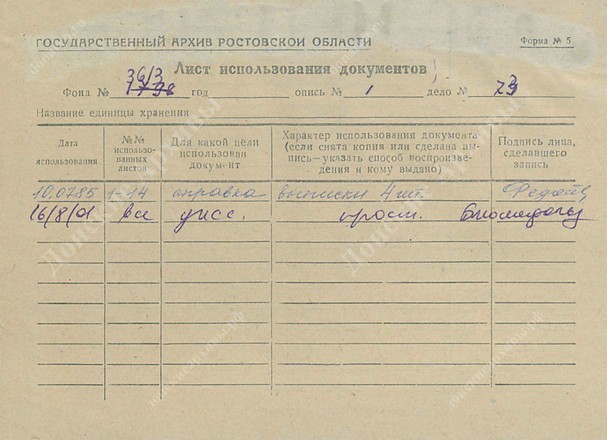 ГОСУДАРСТВЕННЫЙ АРХИВ РОСТОВСКОЙ ОБЛАСТИ
Форма № 5
Лист использования документов
3613
Фонд № 1798 год опись № 1 дело № 23
Название единицы хранения
Дата использования
№№ использованных листов
Для какой цели использован документ
Характер использования документа (если снята копия или сделана выпись—указать способ воспроизведения и кому выдано)
Подпись лица, сделавшего запись
10.07.85 1-14 справка выписки 4 шт.
16/8/01 все дисс. просм.